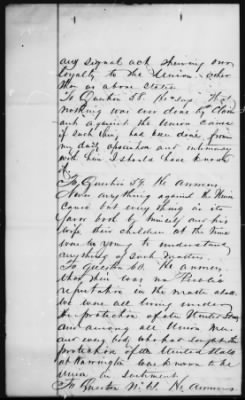 any signal act shewing our
loyalty to the Union other
than as above stated
To Question 58. He says That
nothing was ever done by Claim
ant against the Union Cause
if such thing had been done from
my daily association and intimacy
with him I should have known
it.
To Question 59. He answers
Never anything against the Union
Cause but every thing in its
favor both by himself and his
wife their children at the time
were to young to understand
anything of such matters.
To Question 60. He answers
that there was no Public
reputation in the matter alone
We were all living under
the protection of the United States
and among all Union Men
and every body who had sought the
protection of the United States
at Warrington was known to be
Union in sentiment.
To Question No 61. He answers